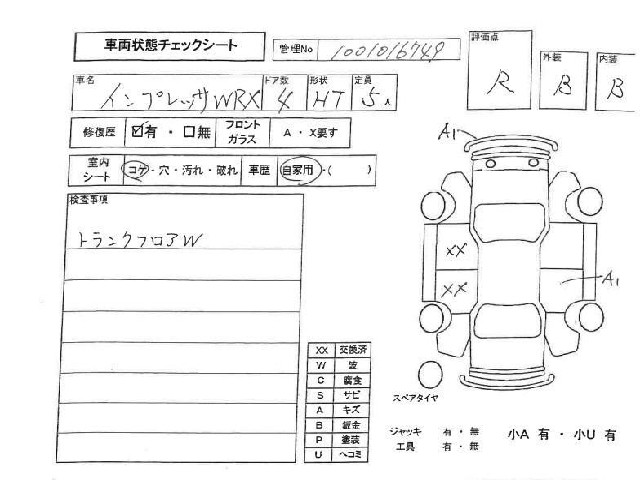 車両状態チェックシート 管理No 1001016749
評価点 R 外装 B 内装 B
車名 インプレッサWRX ドア数 4 形状 HT 定員 5人
修復歴 ☑有・□無 フロントガラス A・X要す
室内シート コゲ・穴・汚れ・破れ 車歴 自家用・( )
検査事項
トランクフロアW
A1
XX
XX
A1
XX 交換済
W 波
C 腐食
S サビ
A キズ
B 鈑金
P 塗装
U ヘコミ
スペアタイヤ
ジャッキ 有・無
工具 有・無
小A 有・小U 有